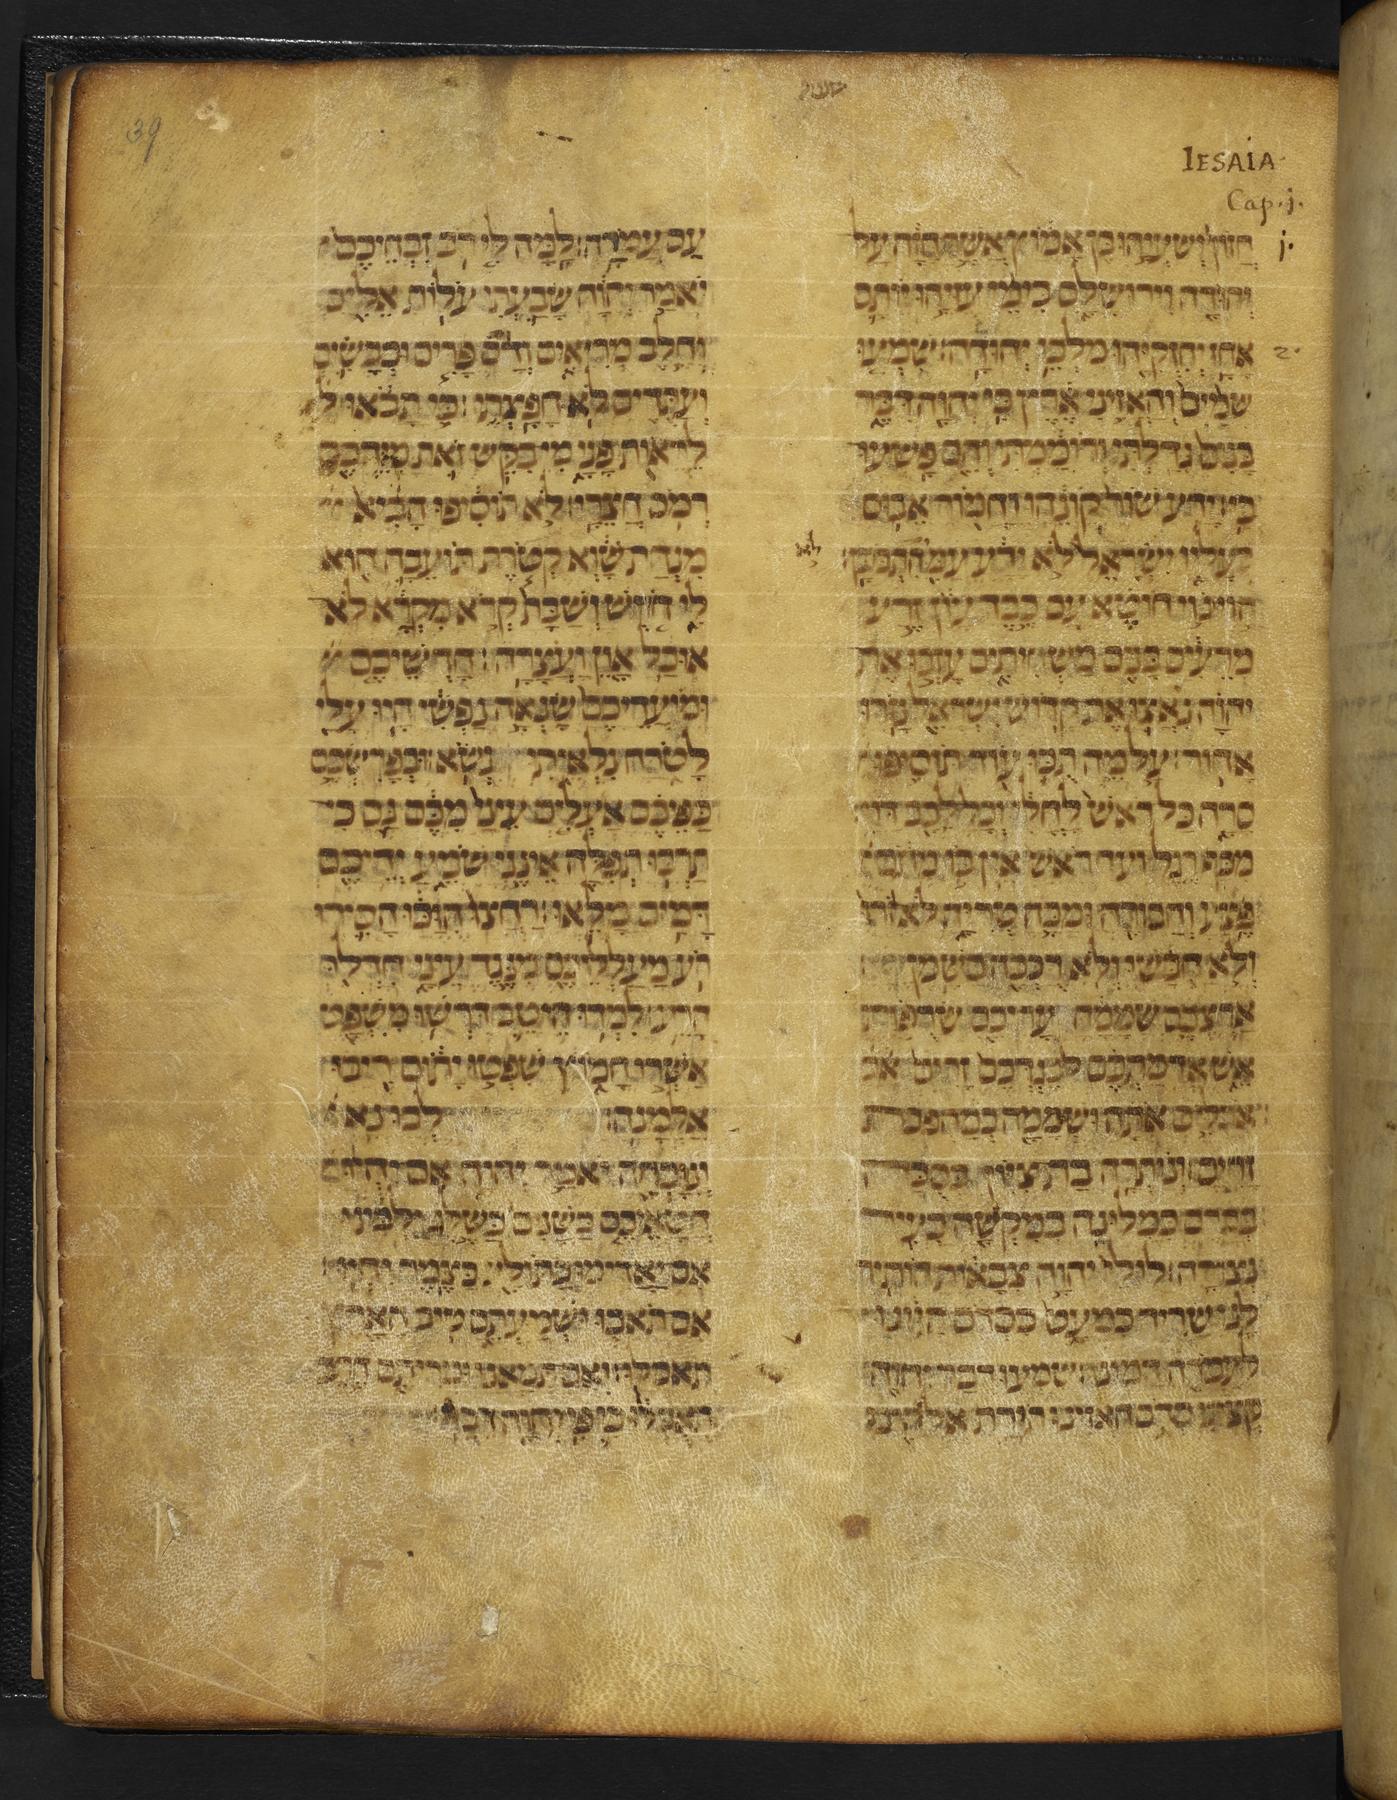 39
IESAIA
Cap. j.
j.
חזון ישעיהו בן אמוץ אשר חזה על
יהודה וירושלם בימי עזיהו יותם
2.
אחז יחזקיהו מלכי יהודה׃ שמעו
שמים והאזיני ארץ כי יהוה דבר
בנים גדלתי ורוממתי והם פשעו
בי׃ ידע שור קונהו וחמור אבוס
בעליו ישראל לא ידע עמי התבונן
לא
הוי גוי חוטא עם כבד עון זרע
מרעים בנים משחיתים עזבו את
יהוה נאצו את קדוש ישראל נזרו
אחור׃ על מה תכו עוד תוסיפו
סרה כל ראש לחלי וכל לבב דוי
מכף רגל ועד ראש אין בו מתם
פצע וחבורה ומכה טריה לא זרו
ולא חבשו ולא רככה בשמן
ארצכם שממה עריכם שרפות
אש אדמתכם לנגדכם זרים אכ
אכלים אתה ושממה כמהפכת
זרים׃ ונותרה בת ציון כסכה
בכרם כמלונה במקשה כעיר
נצורה׃ לולי יהוה צבאות הותיר
לנו שריד כמעט כסדם היינו
לעמרה דמינו׃ שמעו דבר יהוה
קציני סדם האזינו תורת אלהינו
עם עמרה׃ למה לי רב זבחיכם
יאמר יהוה שבעתי עלות אלים
וחלב מריאים ודם פרים וכבשים
ועתדים לא חפצתי׃ כי תבאו ל
לראות פני מי בקש זאת מידכם
רמס חצרי׃ לא תוסיפו הביא
מנחת שוא קטרת תועבה הוא
לי חדש ושבת קרא מקרא לא
אוכל און ועצרה׃ חדשיכם
ומועדיכם שנאה נפשי היו עלי
לטרח נלאיתי נשא׃ ובפרשכם
כפיכם אעלים עיני מכם גם כי
תרבו תפלה אינני שמע ידיכם
דמים מלאו׃ רחצו הזכו הסירו
רע מעלליכם מנגד עיני חדלו
הרע׃ למדו היטב דרשו משפט
אשרו חמוץ שפטו יתום ריבו
אלמנה׃ לכו נא
ונוכחה יאמר יהוה אם יהיו
חטאיכם כשנים כשלג ילבינו
אם יאדימו כתולע כצמר יהיו
אם תאבו ושמעתם טוב הארץ
תאכלו׃ ואם תמאנו ומריתם חרב
תאכלו כי פי יהוה דבר